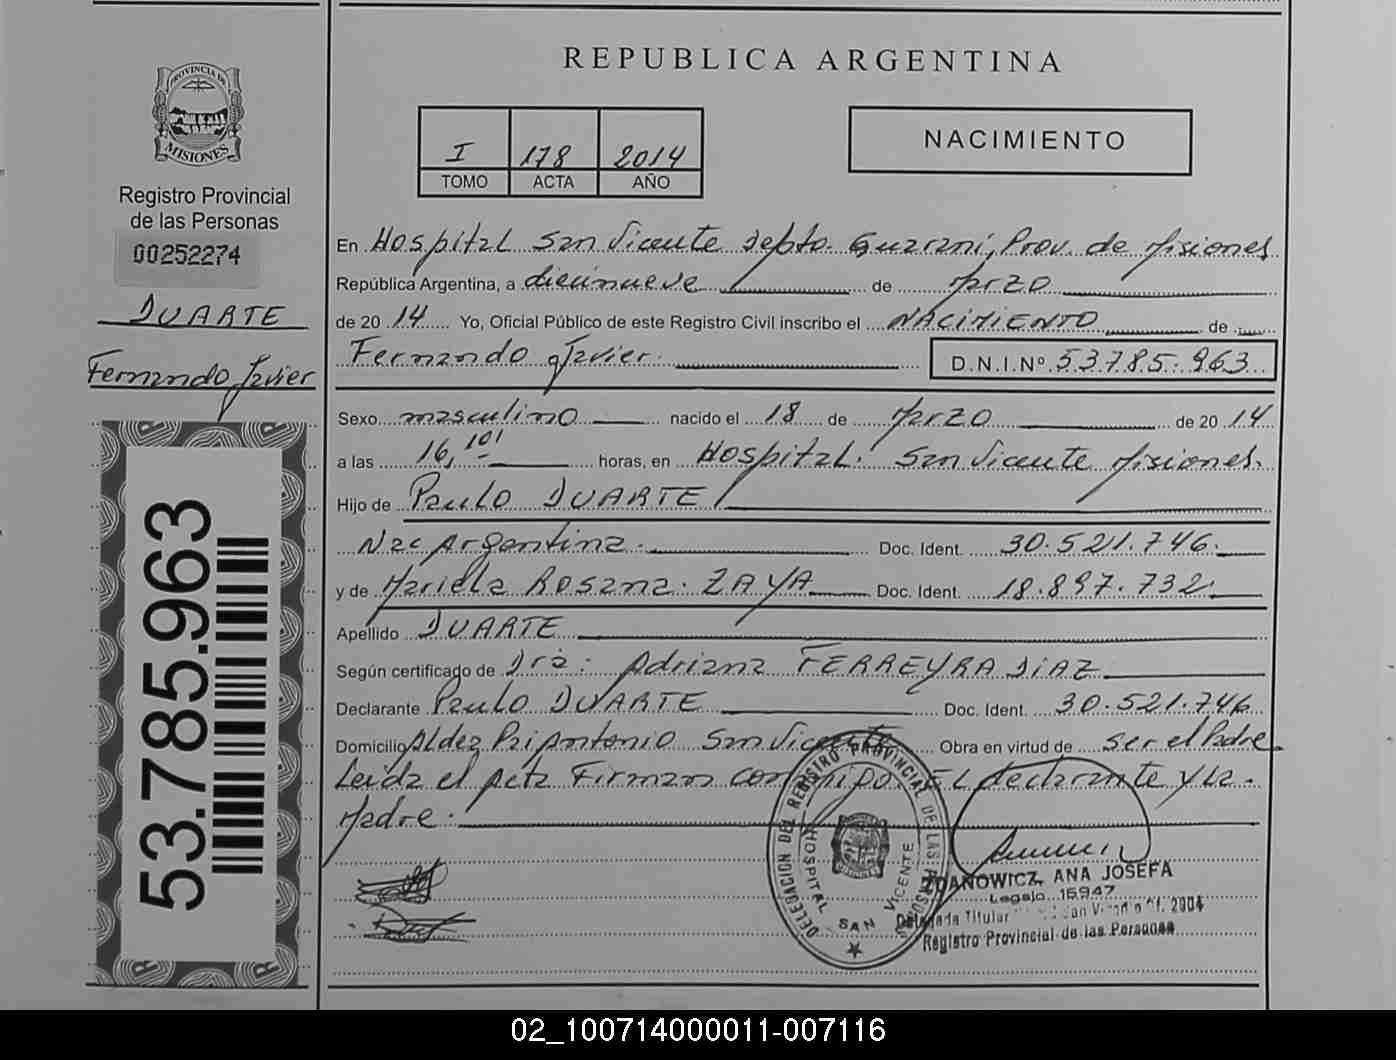 REPUBLICA ARGENTINA
PROVINCIA DE
MISIONES
Registro Provincial
de las Personas
00252274
DUARTE
Fernando Javier
53.785.963
I 178 2014
TOMO ACTA AÑO
NACIMIENTO
En Hospital San Vicente Depto. Guarani, Prov. de Misiones
República Argentina, a diecinueve de Marzo
de 20 14 Yo, Oficial Público de este Registro Civil inscribo el NACIMIENTO de
Fernando Javier. D.N.I.Nº 53.785.963
Sexo masculino nacido el 18 de Marzo de 20 14
a las 16,10' horas, en Hospital. San Vicente Misiones.
Hijo de Paulo DUARTE
Nac Argentina. Doc. Ident. 30.521.746.
y de Mariela Rosana. ZAYA Doc. Ident. 18.897.732.
Apellido DUARTE
Según certificado de Dra: Adriana FERREYRA DIAZ
Declarante Paulo DUARTE Doc. Ident. 30.521.746
Domicilio San Vicente Obra en virtud de ser el Padre
Leida el Acta Firman conmigo. EL declarante y La
Madre.
DELEGACION DEL REGISTRO PROVINCIAL DE LAS PERSONAS
HOSPITAL SAN VICENTE
ZDANOWICZ, ANA JOSEFA
Legajo 15947
Delegada Titular
Registro Provincial de las Personas
02_100714000011-007116